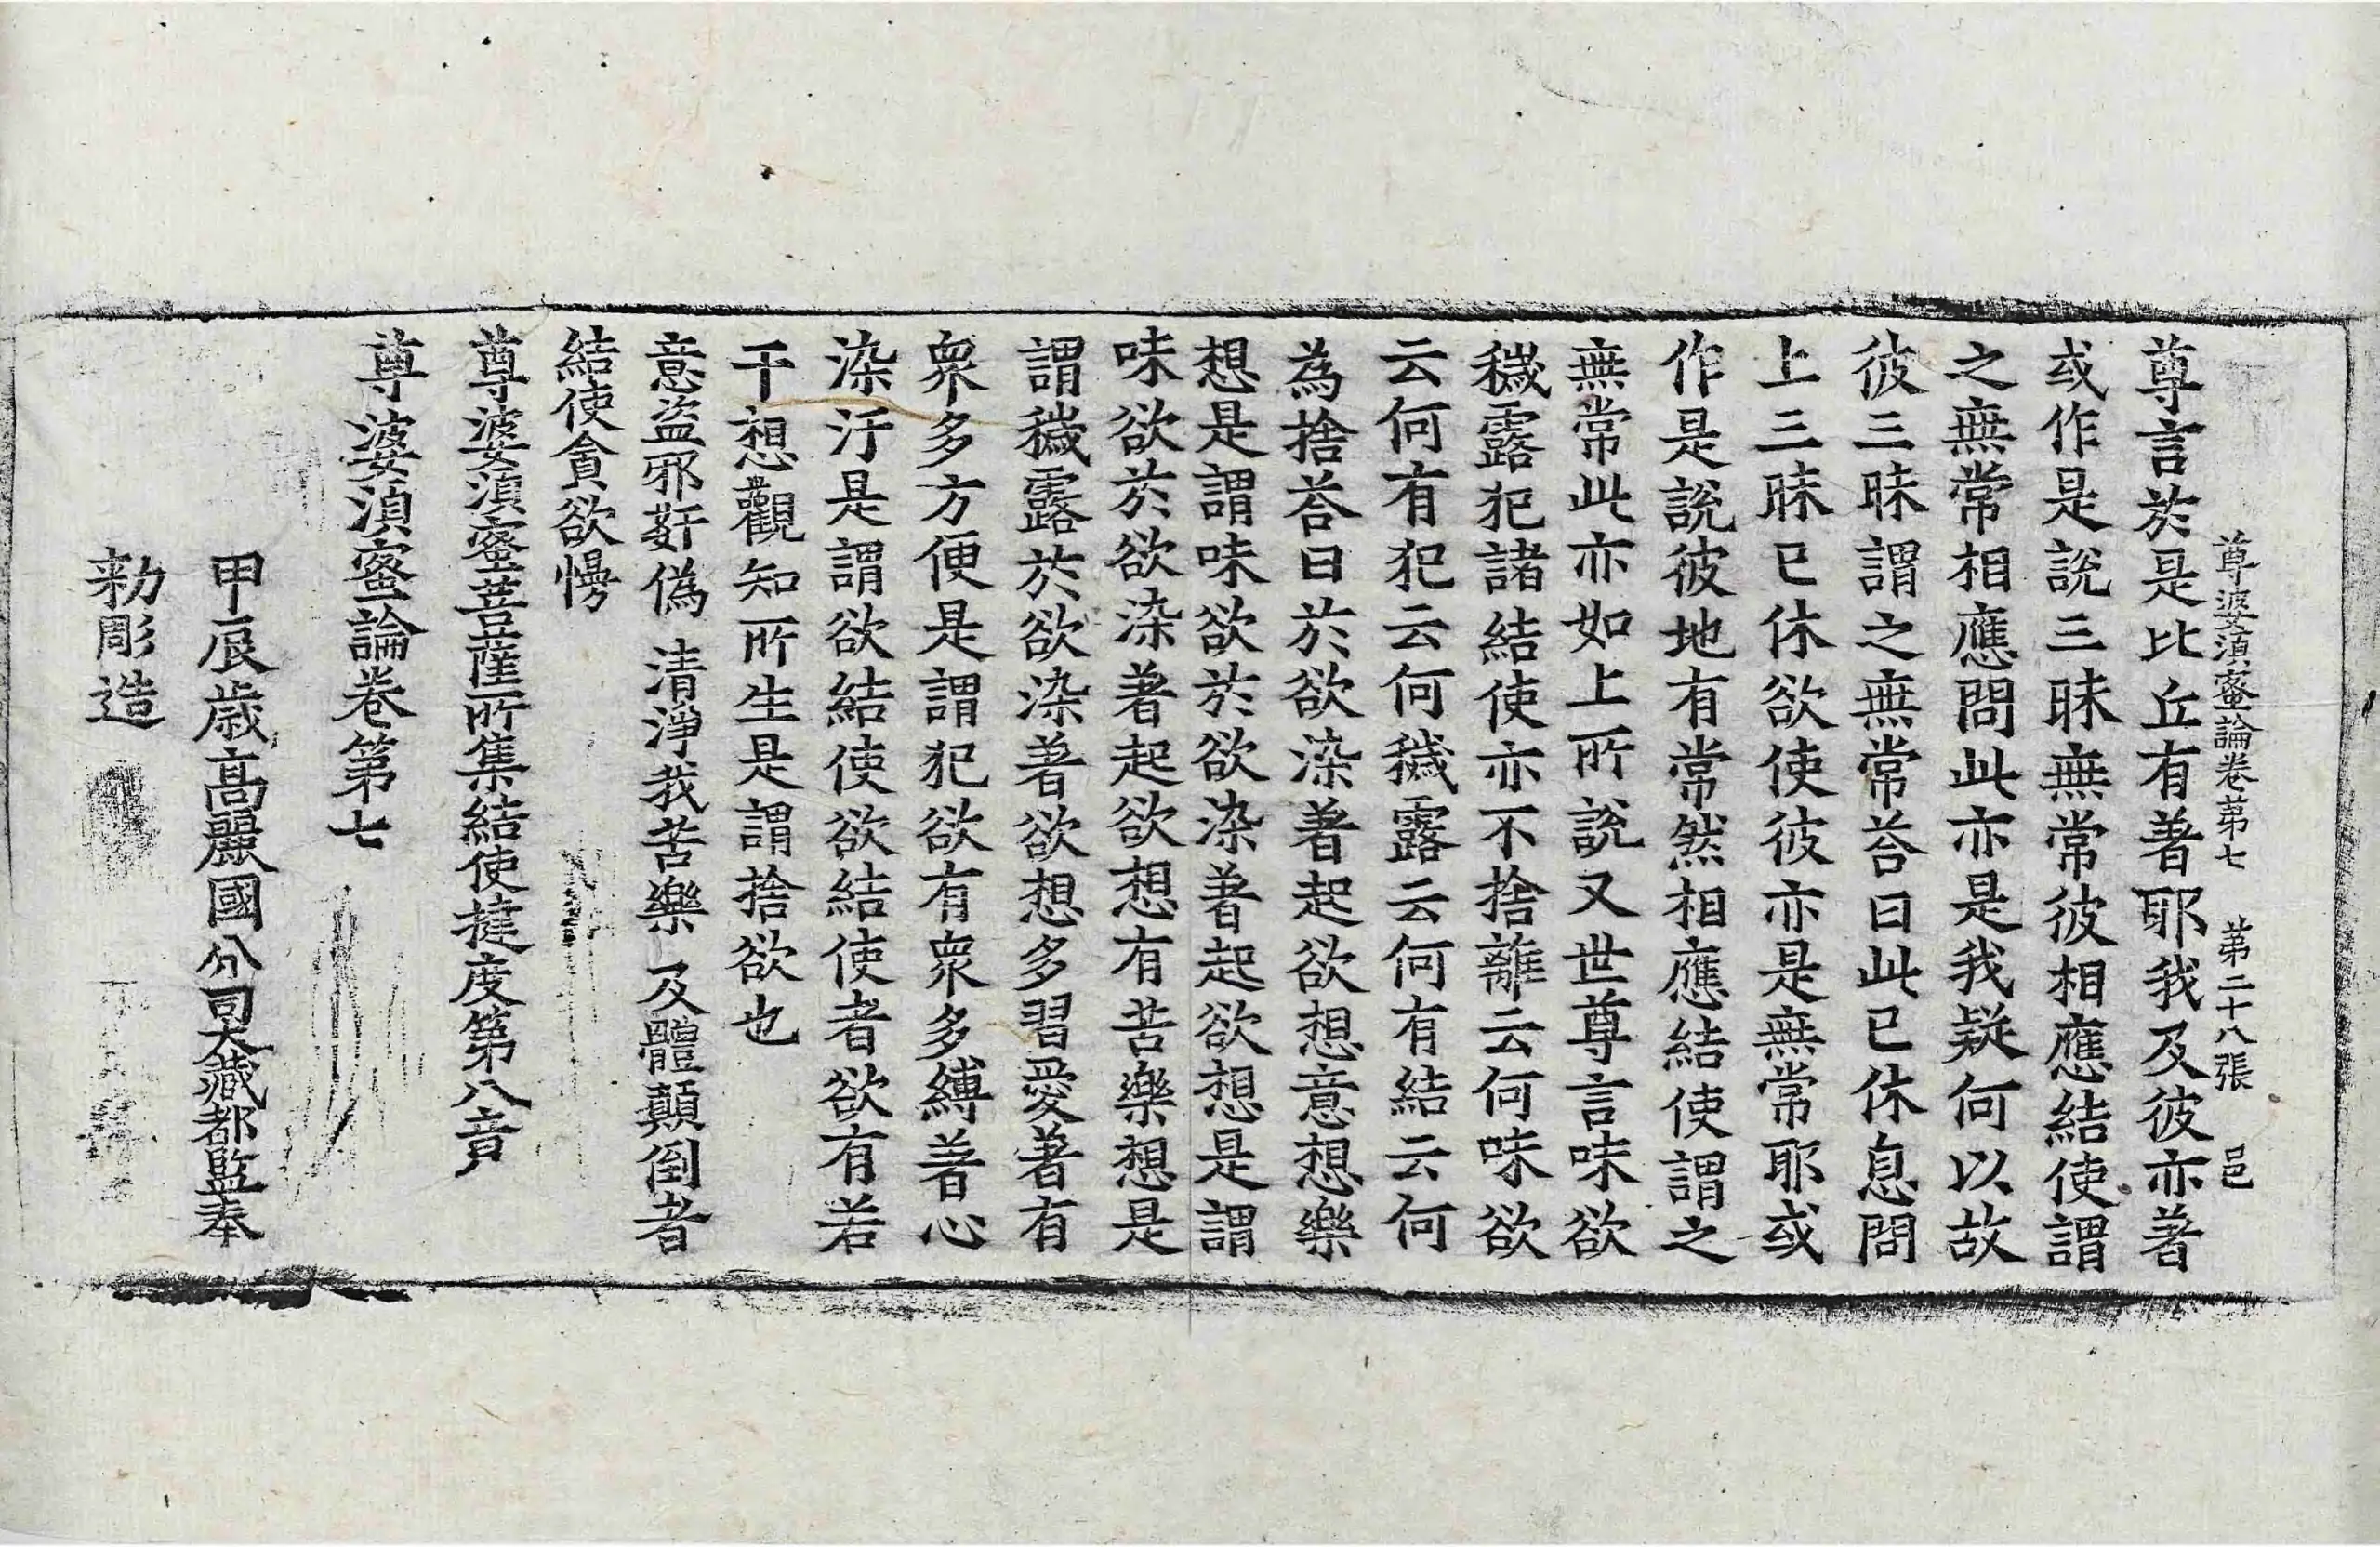 尊婆湏蜜論卷第七　第二十八張　邑
尊言於是比丘有著耶我及彼亦著
或作是說三昧無常彼相應結使謂
之無常相應問此亦是我疑何以故
彼三昧謂之無常荅曰此已休息問
上三昧已休欲使彼亦是無常耶或
作是說彼地有常然相應結使謂之
無常此亦如上所說又世尊言味欲
穢露犯諸結使亦不捨離云何味欲
云何有犯云何穢露云何有結云何
為捨荅曰於欲染著起欲想意想樂
想是謂味欲於欲染著起欲想是謂
味欲於欲染著起欲想有苦樂想是
謂穢露於欲染著欲想多習愛著有
衆多方便是謂犯欲有衆多縛著心
染汙是謂欲結使欲結使者欲有若
干想觀知所生是謂捨欲也
意盜邪姧偽　清淨我苦樂　及體顛倒者
結使貪欲慢
尊婆湏蜜菩薩所集結使揵度第八竟
尊婆湏蜜論卷第七
甲辰歳高麗國分司大藏都監奉
勑彫造